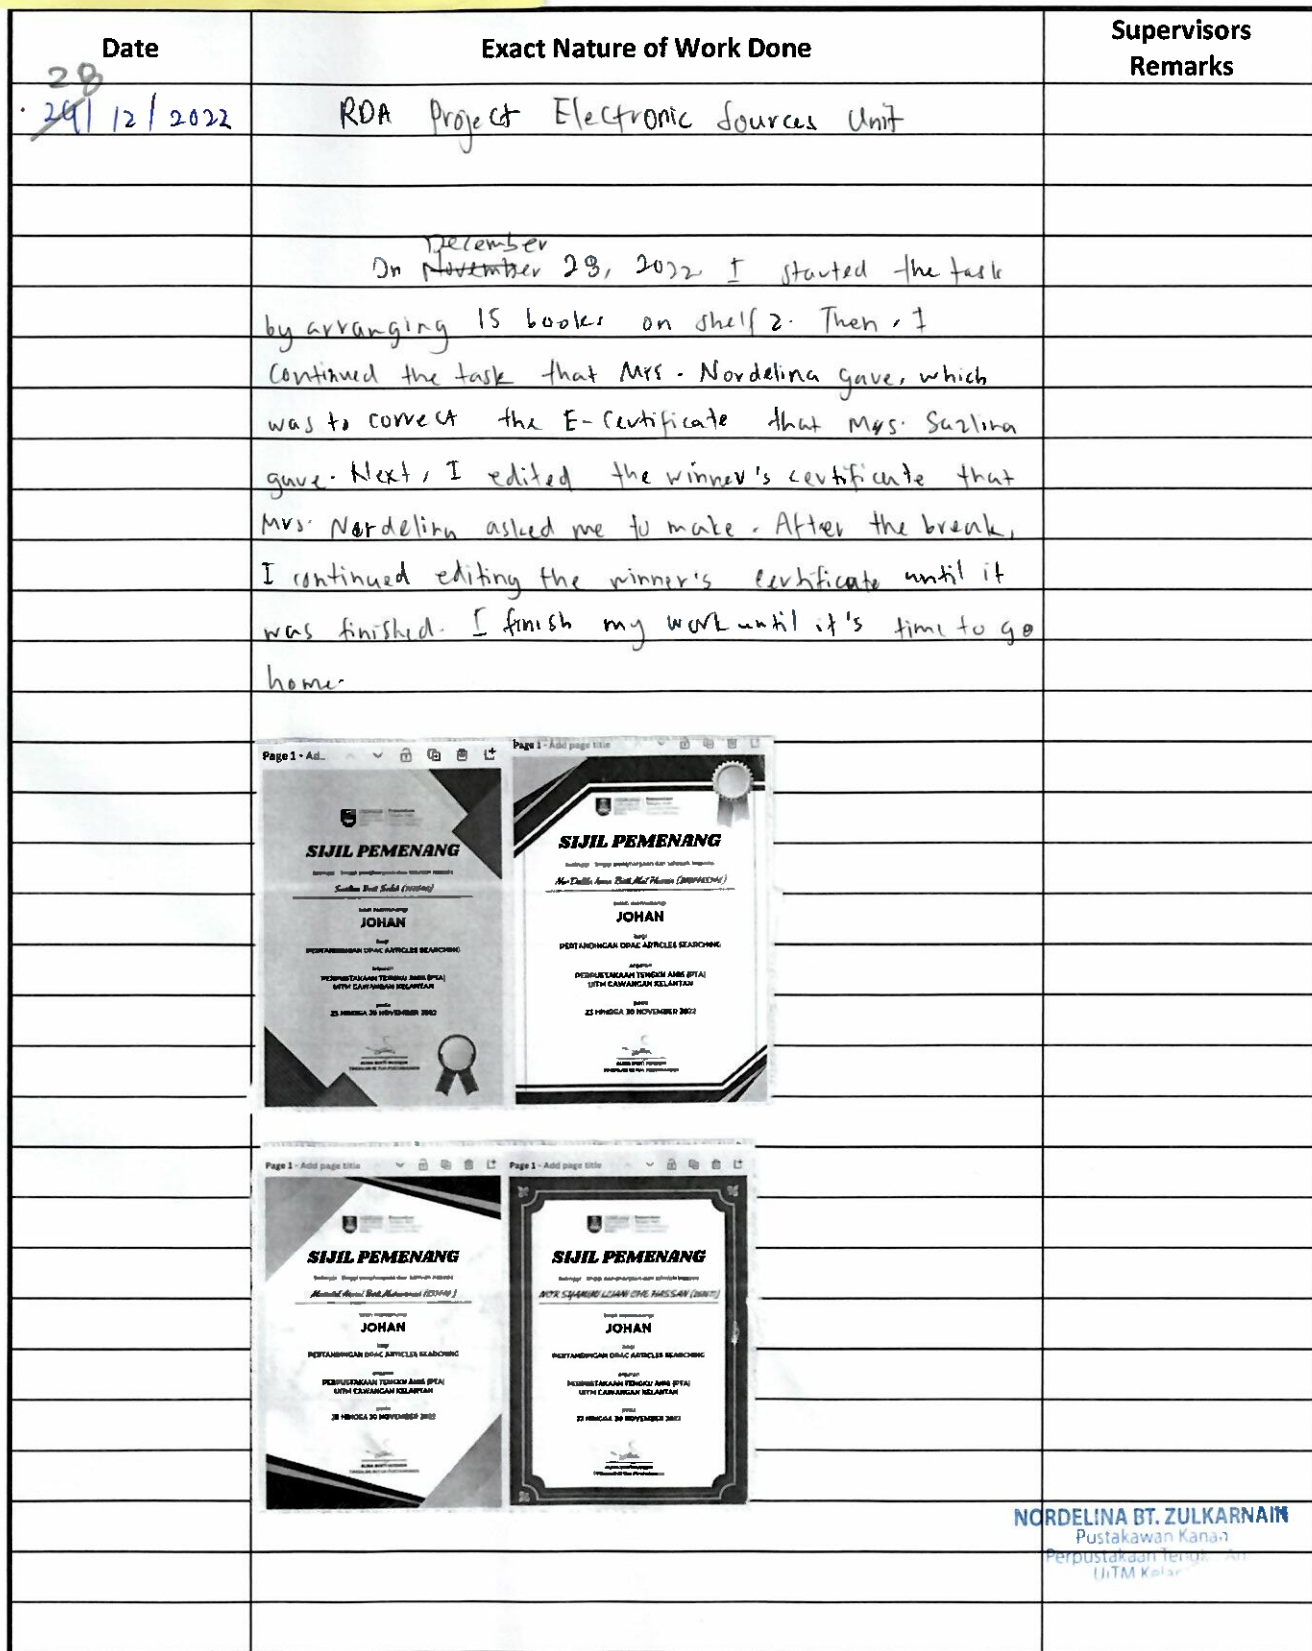 Date
Exact Nature of Work Done
Supervisors
Remarks
28
29/ 12 / 2022
RDA Project Electronic Sources Unit
December
On November 28, 2022 I started the task
by arranging 15 books on shelf 2. Then, I
continued the task that Mrs. Nordelina gave, which
was to correct the E-Certificate that Mrs. Suzlina
gave. Next, I edited the winner's certificate that
Mrs. Nordelina asked me to make. After the break,
I continued editing the winner's certificate until it
was finished. I finish my work until it's time to go
home.
Page 1 - Ad...
SIJIL PEMENANG
JOHAN
PERTANDINGAN OPAC ARTICLES SEARCHING
PERPUSTAKAAN TENGKU ANIS (PTA)
UITM CAWANGAN KELANTAN
NOVEMBER 2022
Page 1 - Add page title
SIJIL PEMENANG
JOHAN
PERTANDINGAN OPAC ARTICLES SEARCHING
PERPUSTAKAAN TENGKU ANIS (PTA)
UITM CAWANGAN KELANTAN
HINGGA 30 NOVEMBER 2022
Page 1 - Add page title
SIJIL PEMENANG
JOHAN
PERTANDINGAN OPAC ARTICLES SEARCHING
PERPUSTAKAAN TENGKU ANIS (PTA)
UITM CAWANGAN KELANTAN
HINGGA 30 NOVEMBER 2022
Page 1 - Add page title
SIJIL PEMENANG
JOHAN
PERTANDINGAN OPAC ARTICLES SEARCHING
PERPUSTAKAAN TENGKU ANIS (PTA)
UITM CAWANGAN KELANTAN
HINGGA 30 NOVEMBER 2022
NORDELINA BT. ZULKARNAIN
Pustakawan Kanan
Perpustakaan
UiTM